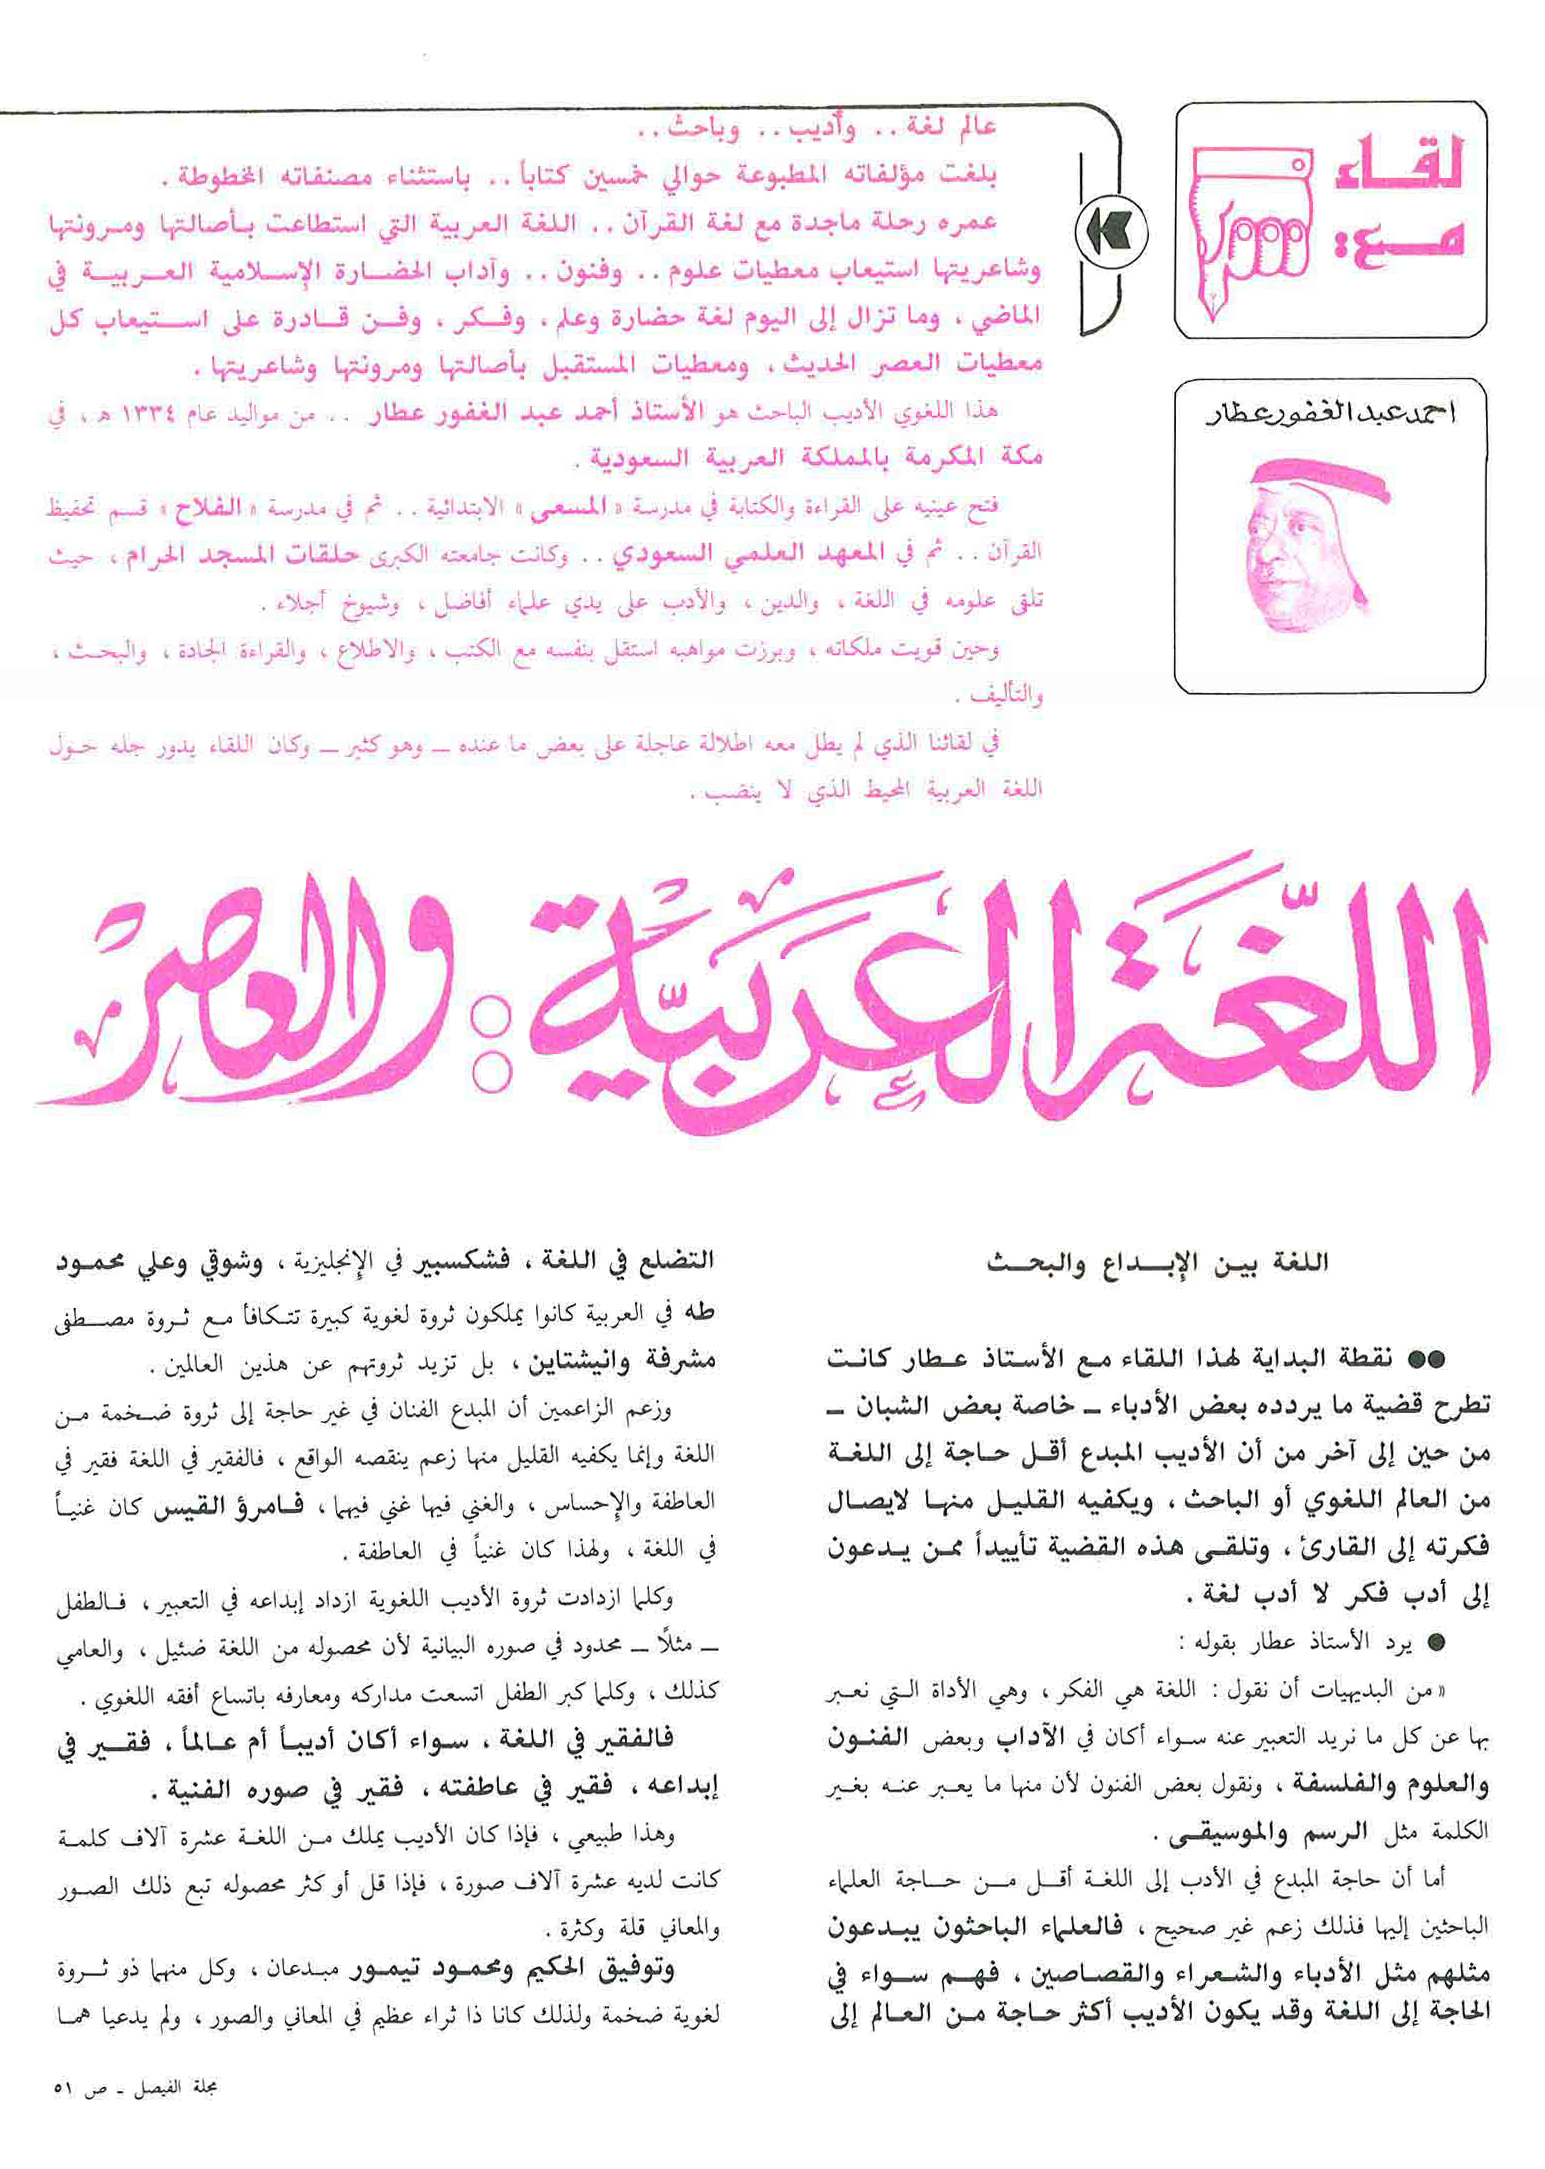 لقاء
مع:
احمد عبد الغفور عطار
عالم لغة .. وأديب .. وباحث ..
بلغت مؤلفاته المطبوعة حوالي خمسين كتاباً .. باستثناء مصنفاته المخطوطة .
عمره رحلة ماجدة مع لغة القرآن .. اللغة العربية التي استطاعت بأصالتها ومرونتها
وشاعريتها استيعاب معطيات علوم .. وفنون .. وآداب الحضارة الإسلامية العربية في
الماضي ، وما تزال إلى اليوم لغة حضارة وعلم ، وفكر ، وفن قادرة على استيعاب كل
معطيات العصر الحديث ، ومعطيات المستقبل بأصالتها ومرونتها وشاعريتها .
هذا اللغوي الأديب الباحث هو الأستاذ أحمد عبد الغفور عطار .. من مواليد عام ١٣٣٤ هـ ، في
مكة المكرمة بالمملكة العربية السعودية .
فتح عينيه على القراءة والكتابة في مدرسة « المسعى » الابتدائية .. ثم في مدرسة « الفلاح » قسم تحفيظ
القرآن .. ثم في المعهد العلمي السعودي .. وكانت جامعته الكبرى حلقات المسجد الحرام ، حيث
تلقى علومه في اللغة ، والدين ، والأدب على يدي علماء أفاضل ، وشيوخ أجلاء .
وحين قويت ملكاته ، وبرزت مواهبه استقل بنفسه مع الكتب ، والاطلاع ، والقراءة الجادة ، والبحث ،
والتأليف .
في لقائنا الذي لم يطل معه اطلالة عاجلة على بعض ما عنده ــ وهو كثير ــ وكان اللقاء يدور جله حول
اللغة العربية المحيط الذي لا ينضب .
اللّغَة العَربيَّة : والعصر
اللغة بين الإبداع والبحث
●● نقطة البداية لهذا اللقاء مع الأستاذ عطار كانت
تطرح قضية ما يردده بعض الأدباء ــ خاصة بعض الشبان ــ
من حين إلى آخر من أن الأديب المبدع أقل حاجة إلى اللغة
من العالم اللغوي أو الباحث ، ويكفيه القليل منها لايصال
فكرته إلى القارئ ، وتلقى هذه القضية تأييداً ممن يدعون
إلى أدب فكر لا أدب لغة .
● يرد الأستاذ عطار بقوله :
« من البديهيات أن نقول : اللغة هي الفكر ، وهي الأداة التي نعبر
بها عن كل ما نريد التعبير عنه سواء أكان في الآداب وبعض الفنون
والعلوم والفلسفة ، ونقول بعض الفنون لأن منها ما يعبر عنه بغير
الكلمة مثل الرسم والموسيقى .
أما أن حاجة المبدع في الأدب إلى اللغة أقل من حاجة العلماء
الباحثين إليها فذلك زعم غير صحيح ، فالعلماء الباحثون يبدعون
مثلهم مثل الأدباء والشعراء والقصاصين ، فهم سواء في
الحاجة إلى اللغة وقد يكون الأديب أكثر حاجة من العالم إلى
التضلع في اللغة ، فشكسبير في الإنجليزية ، وشوقي وعلي محمود
طه في العربية كانوا يملكون ثروة لغوية كبيرة تتكافأ مع ثروة مصطفى
مشرفة وانيشتاين ، بل تزيد ثروتهم عن هذين العالمين .
وزعم الزاعمين أن المبدع الفنان في غير حاجة إلى ثروة ضخمة من
اللغة وإنما يكفيه القليل منها زعم ينقصه الواقع ، فالفقير في اللغة فقير في
العاطفة والإحساس ، والغني فيها غني فيهما ، فامرؤ القيس كان غنياً
في اللغة ، ولهذا كان غنياً في العاطفة .
وكلما ازدادت ثروة الأديب اللغوية ازداد إبداعه في التعبير ، فالطفل
ــ مثلاً ــ محدود في صوره البيانية لأن محصوله من اللغة ضئيل ، والعامي
كذلك ، وكلما كبر الطفل اتسعت مداركه ومعارفه باتساع أفقه اللغوي .
فالفقير في اللغة ، سواء أكان أديباً أم عالماً ، فقير في
إبداعه ، فقير في عاطفته ، فقير في صوره الفنية .
وهذا طبيعي ، فإذا كان الأديب يملك من اللغة عشرة آلاف كلمة
كانت لديه عشرة آلاف صورة ، فإذا قل أو كثر محصوله تبع ذلك الصور
والمعاني قلة وكثرة .
وتوفيق الحكيم ومحمود تيمور مبدعان ، وكل منهما ذو ثروة
لغوية ضخمة ولذلك كانا ذا ثراء عظيم في المعاني والصور ، ولم يدعيا هما
مجلة الفيصل ـ ص ٥١